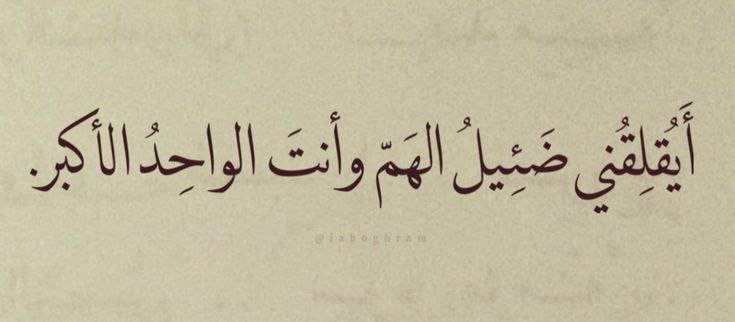 أَيُقلِقُني ضَئِيلُ الهَمّ وأنتَ الواحِدُ الأكبر.
@iaboghram